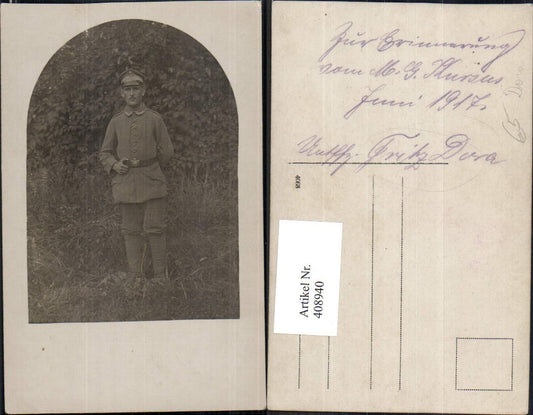 Zur Erinnerung
vom M. G. Kursus
Juni 1917.
Uttffz. Fritz Dora
Dora
Artikel Nr.
408940